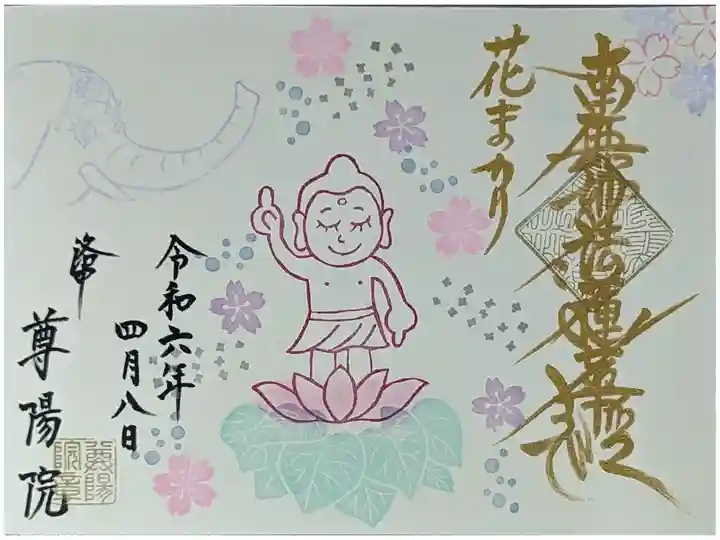 南無妙法蓮華経
花まつり
令和六年
四月八日
尊陽院
尊陽
院章